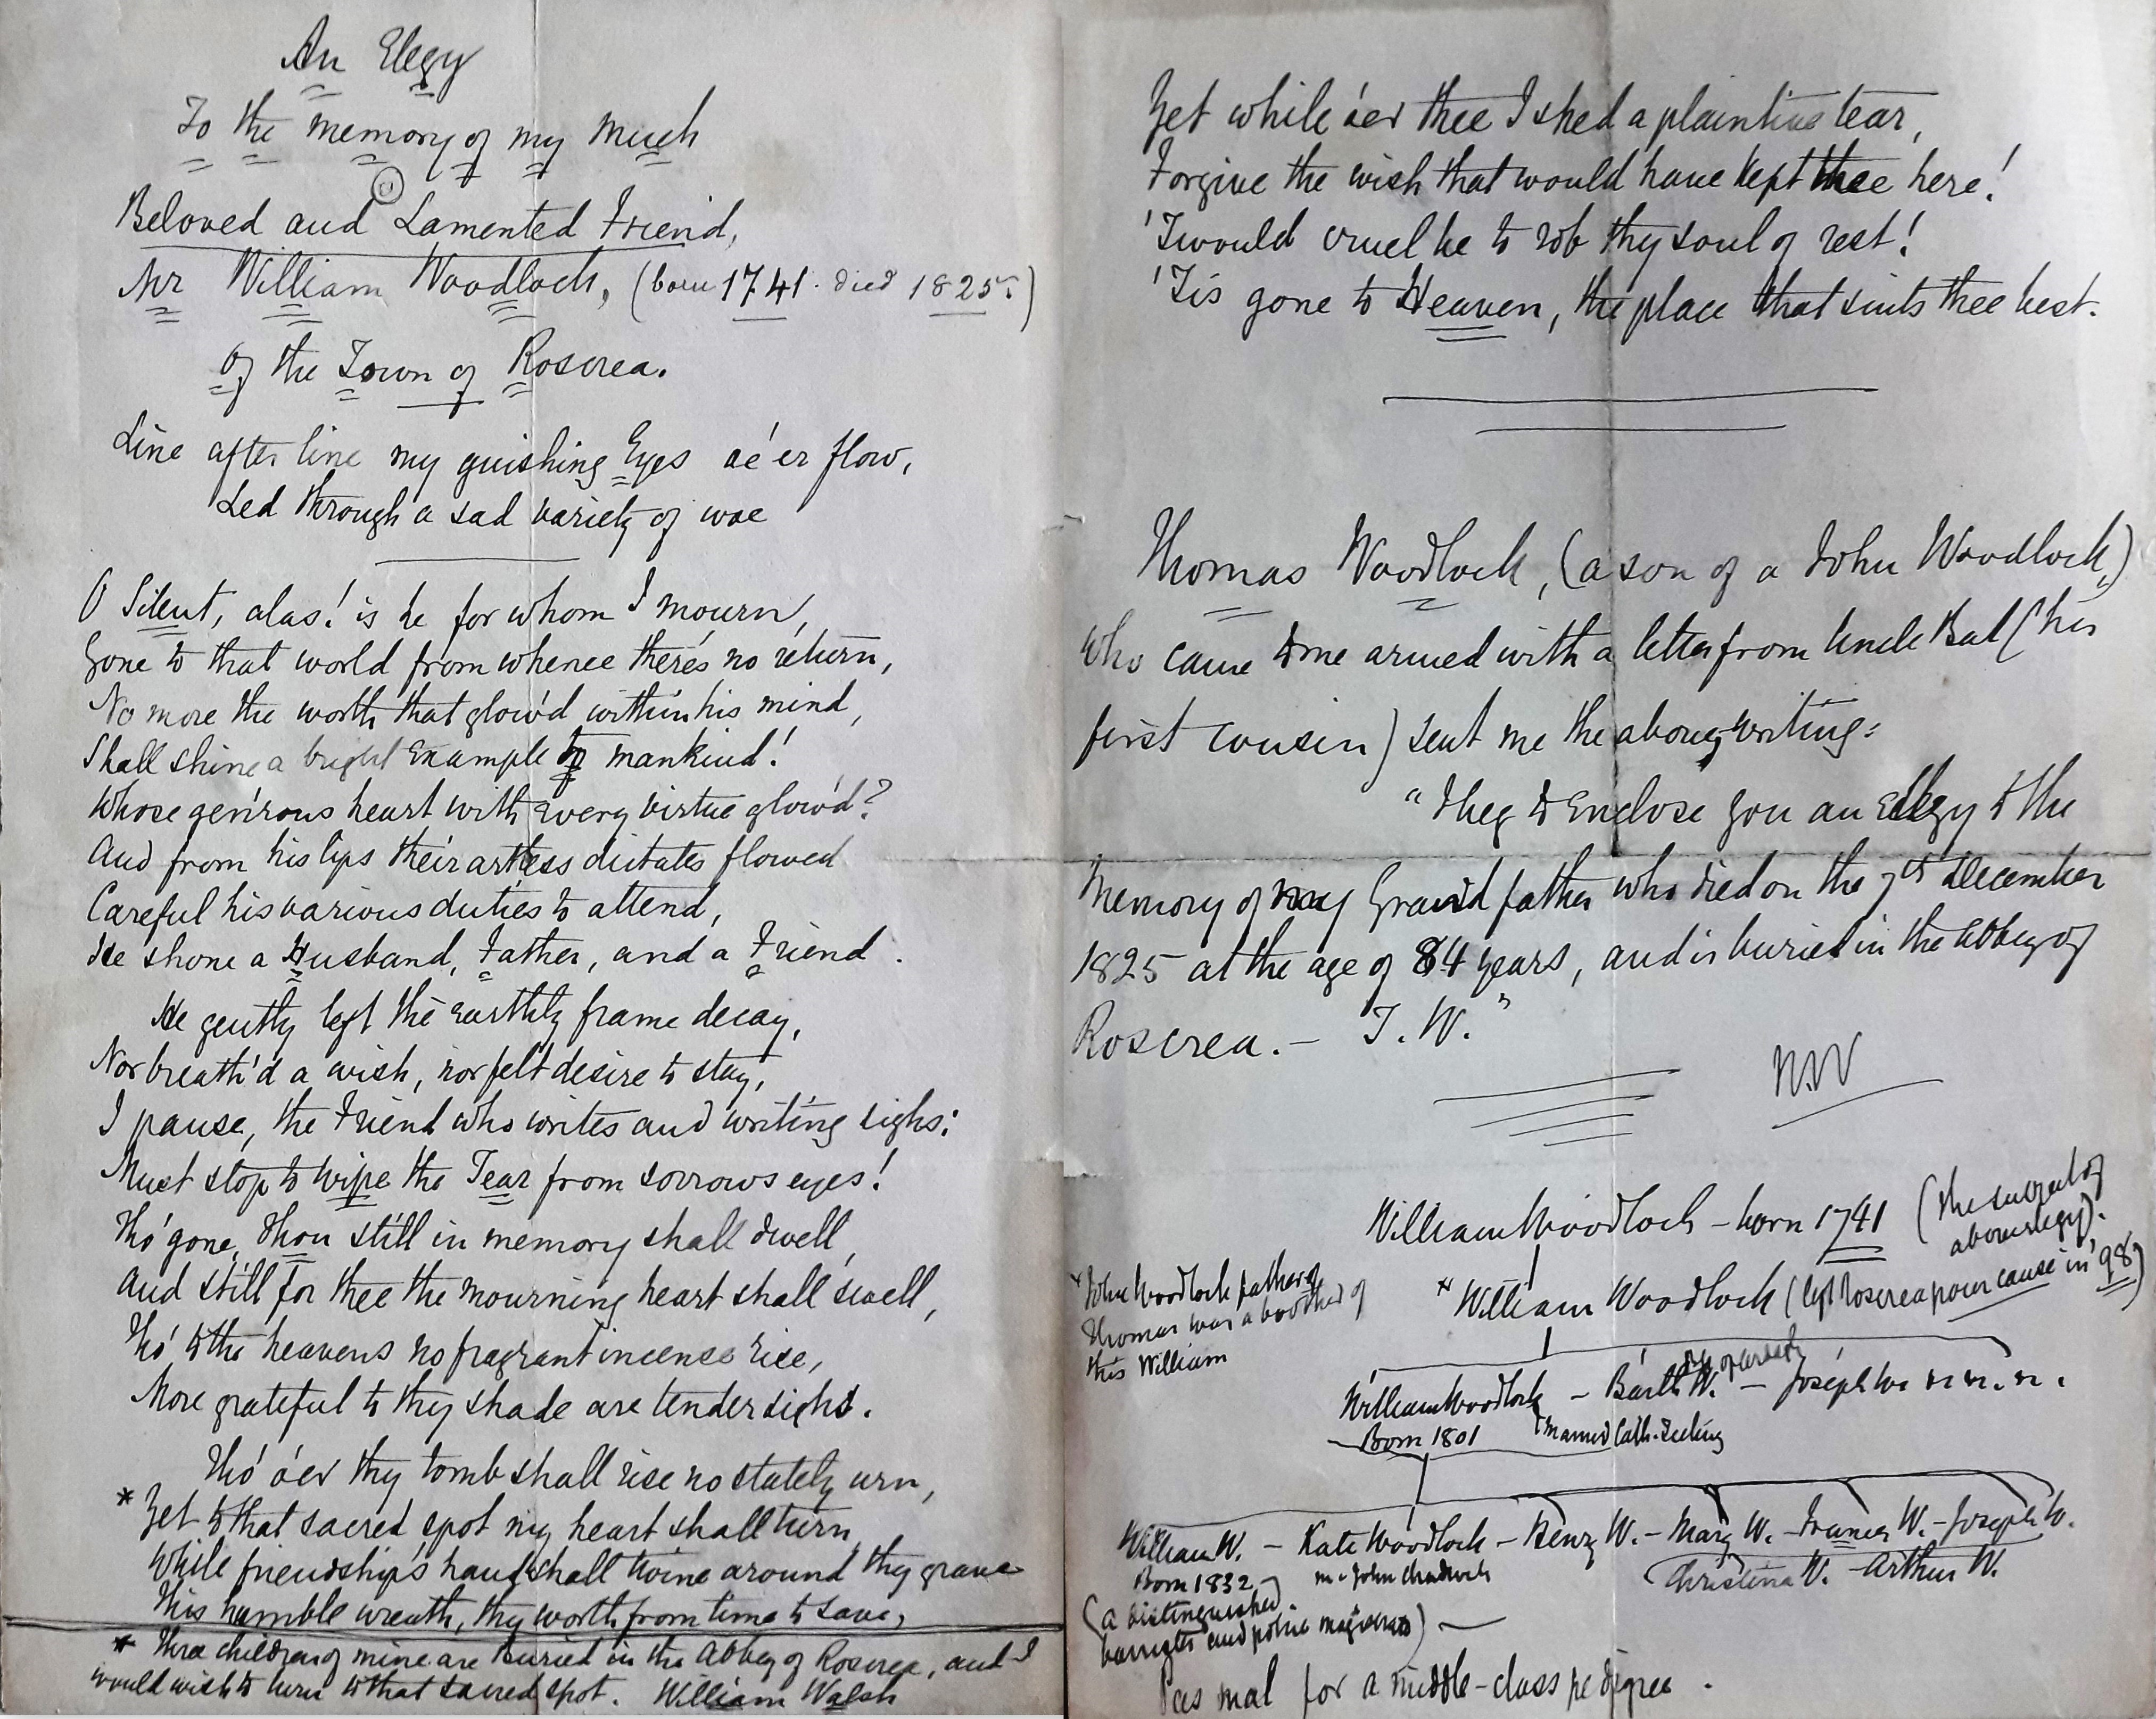 An Elegy
To the memory of my much
Beloved and Lamented Friend,
Mr William Woodlock, (born 1741. died 1825.)
Of the Town of Roscrea.
Line after line my guishing Eyes oe'er flow,
Led through a sad variety of woe
O Silent, alas! is he for whom I mourn,
Gone to that world from whence there's no return,
No more the worth that glow'd within his mind,
Shall shine a bright Example to mankind!
Whose gen'rous heart with Every virtue glow'd?
And from his lips their artless dictates flowed
Careful his various duties to attend,
He shone a Husband, Father, and a Friend.
He gently left the Earthly frame decay,
Nor breath'd a wish, nor felt desire to stay,
I pause, the Friend who writes and writing sighs:
Must stop to wipe the Tear from sorrows eyes!
Tho' gone, Thou still in memory shall dwell,
And still for thee the mourning heart shall swell,
Tho' to the heavens no fragrant incense rise,
More grateful to thy shade are tender sighs.
Tho' o'er thy tomb shall rise no stately urn,
* Yet to that sacred spot my heart shall turn,
While friendship's hand shall twine around thy grave
This humble wreath, thy worth from time to save,
* Three children of mine are Buried in the Abbey of Roscrea, and I
would wish to turn to that sacred spot. William Walsh
Yet while o'er thee I shed a plaintive tear,
Forgive the wish that would have kept thee here!
'Twould cruel be to rob thy soul of rest!
'Tis gone to Heaven, the place that suits thee best.
Thomas Woodlock, (a son of a John Woodlock,)
who came to me armed with a letter from Uncle Bat (his
first cousin) sent me the above, writing:
"I beg to Enclose you an Elegy to the
Memory of my Grandfather who died on the 7th December
1825 at the age of 84 years, and is buried in the Abbey of
Roscrea. — T. W."
W.W
William Woodlock — born 1741 (the subject of
above elegy).
* William Woodlock (left Roscrea pour cause in '98)
* John Woodlock father of
Thomas was a brother of
this William
William Woodlock — Barth W. — Joseph W.
Born 1801 married Cath.
William W. — Kate Woodlock — Henry W. — Mary W. — Frances W. — Joseph W.
Born 1832 m. John Chadwick Christina W. — Arthur W.
(a distinguished
barrister and police magistrate) —
Pas mal for a middle-class pedigree.